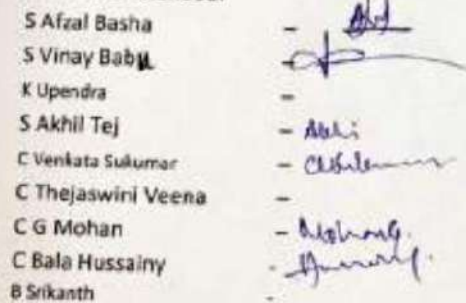 S Afzal Basha -
S Vinay Babu -
K Upendra -
S Akhil Tej -
C Venkata Sukumar -
C Thejaswini Veena -
C G Mohan - Mohan G.
C Bala Hussainy -
B Srikanth -